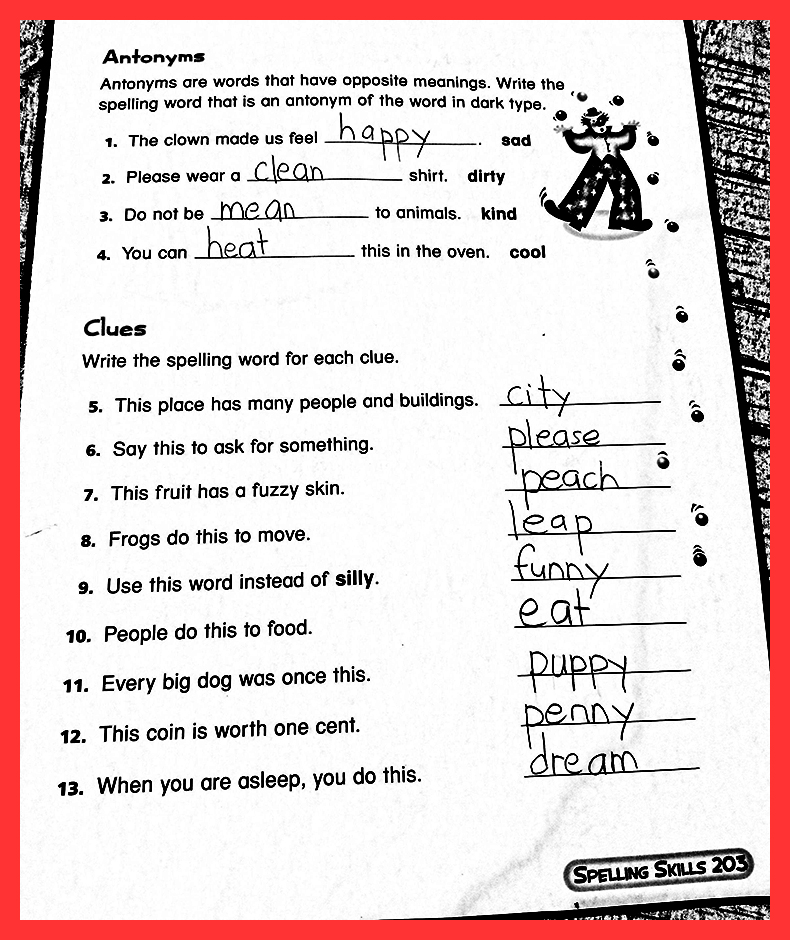 Antonyms
Antonyms are words that have opposite meanings. Write the
spelling word that is an antonym of the word in dark type.
1. The clown made us feel happy. sad
2. Please wear a clean shirt. dirty
3. Do not be mean to animals. kind
4. You can heat this in the oven. cool
Clues
Write the spelling word for each clue.
5. This place has many people and buildings. city
6. Say this to ask for something. please
7. This fruit has a fuzzy skin. peach
8. Frogs do this to move. leap
9. Use this word instead of silly. funny
10. People do this to food. eat
11. Every big dog was once this. puppy
12. This coin is worth one cent. penny
13. When you are asleep, you do this. dream
SPELLING SKILLS 203